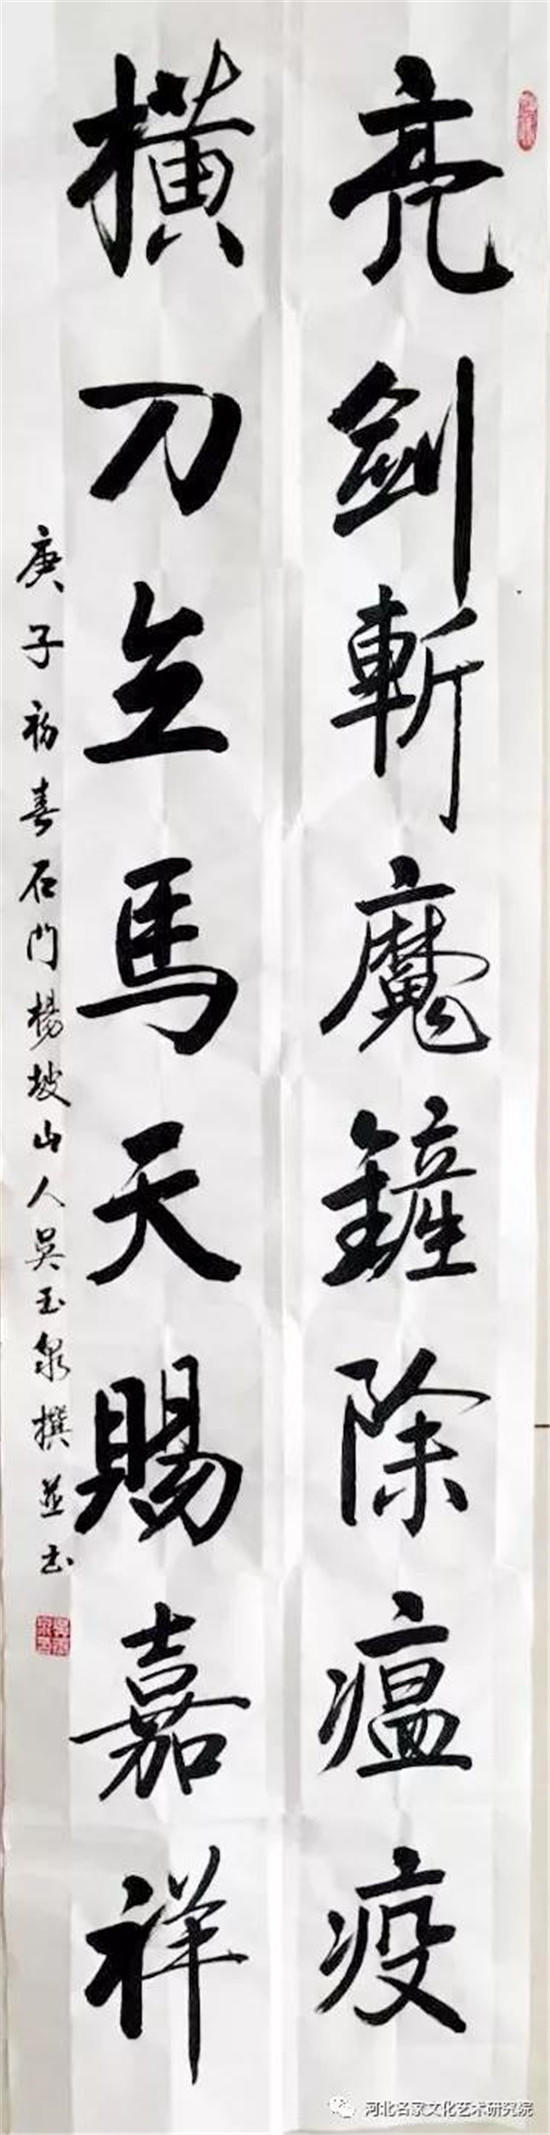 亮劍斬魔鏟除瘟疫
橫刀立馬天賜嘉祥
庚子初春石門楊坡山人吴玉泉撰並书
河北名家文化艺术研究院